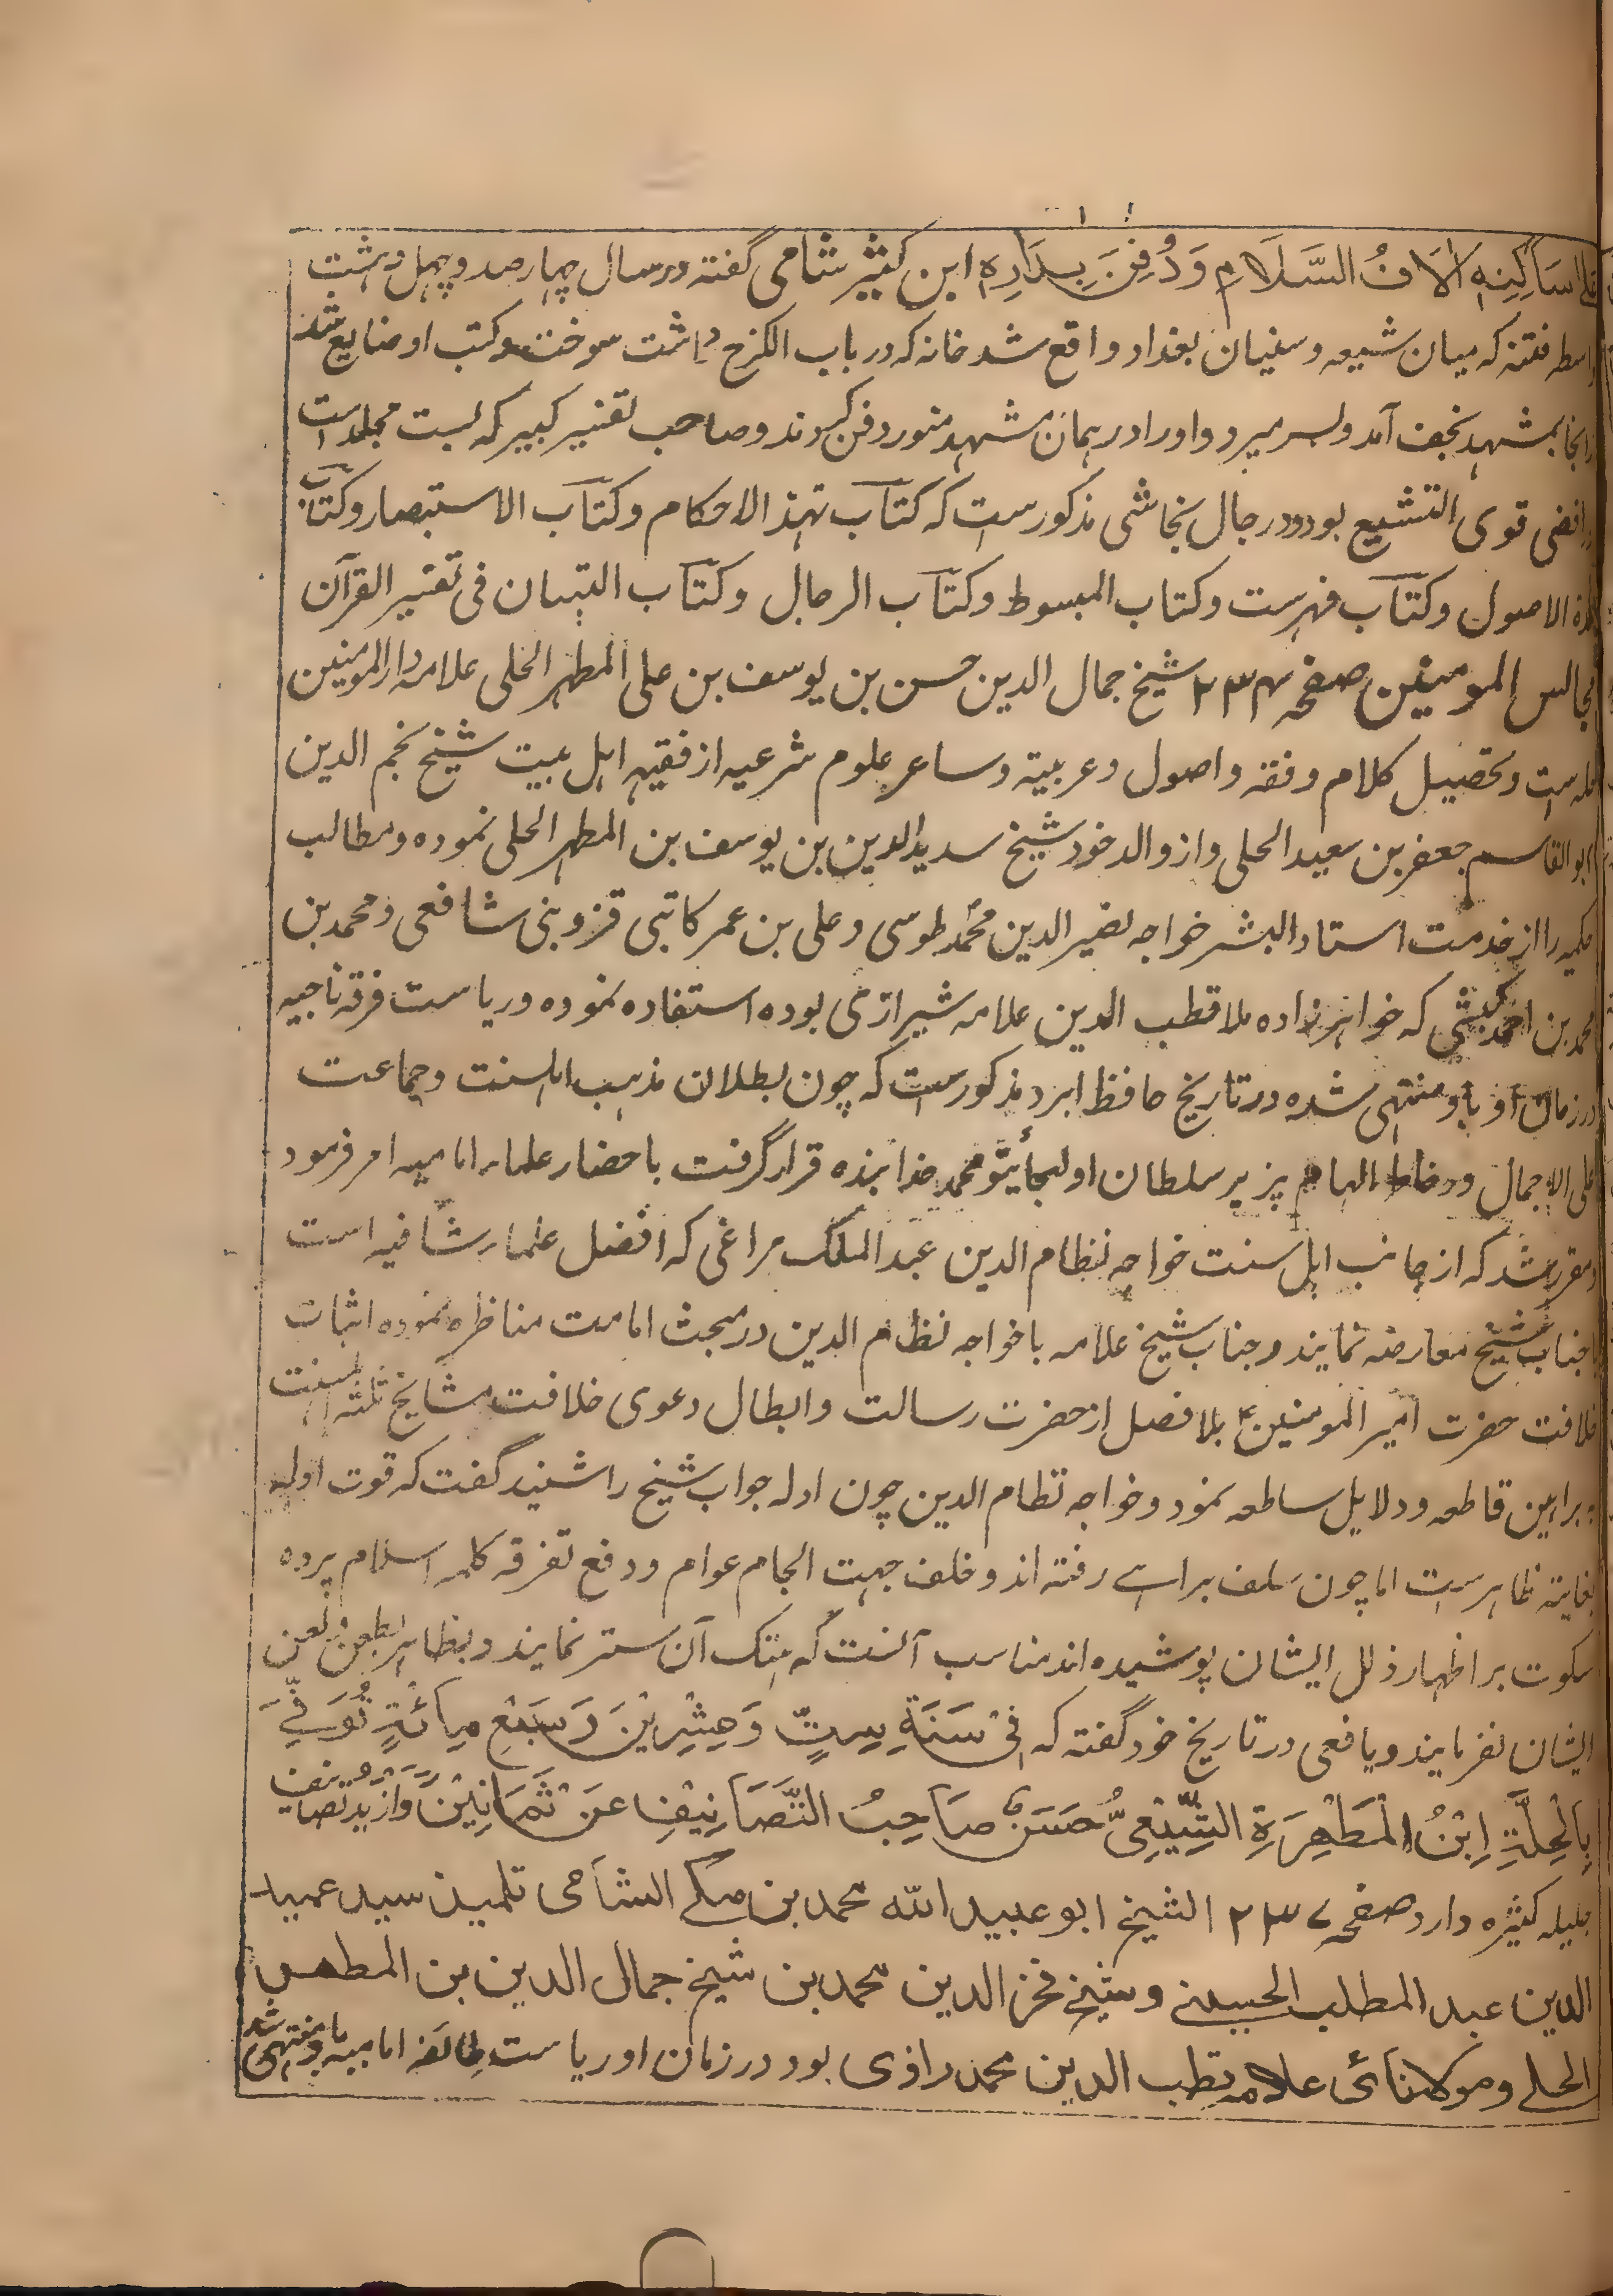 ساكنه الاف السلام وَدُفِنَ بِدَارِهِ ابن کثیر شامی گفته در سال چهار صد و چهل و هشت
واسطه فتنه که میان شیعه و سنیان بغداد واقع شد خانه که در باب الکرخ داشت سوخت و کتب او ضایع شد
بمشهد نجف آمد و بسر میبرد و او را در همان مشهد منور دفن کردند و صاحب تفسیر کبیر که بست مجلد است
رافضی قوی التشیع بود و در رجال نجاشی مذکور ست که کتاب تهذ الاحکام و کتاب الاستبصار و کتاب
الاصول و کتاب فهرست و کتاب المبسوط و کتاب الرجال و کتاب التبیان فی تفسیر القرآن
مجالس المومنین صفحه ۲۳۴ شیخ جمال الدین حسن بن یوسف بن علی المطهر الحلی علامه دار المومنین
حله است و تحصیل کلام و فقه و اصول و عربیته و سایر علوم شرعیه از فقیه اهل بیت شیخ نجم الدین
ابو القاسم جعفر بن سعید الحلی و از والد خود شیخ سدید الدین بن یوسف بن المطهر الحلی نموده و مطالب
حکمیه را از خدمت استاد البشر خواجه نصیر الدین محمد طوسی و علی بن عمر کاتبی قزوینی شافعی و محمد بن
محمد بن احمد کیشی که خواهر زاده ملا قطب الدین علامه شیرازی بوده استفاده نموده و ریاست فرقه ناجیه
در زمان او باو منتهی شده در تاریخ حافظ ابرو مذکور ست که چون بطلان مذهب اهلسنت و جماعت
علی الاجمال در خاطر الهام پزیر سلطان اولجائیتو محمد خدا بنده قرار گرفت باحضار علماء امامیه امر فرمود
و مقرر شد که از جانب اهل سنت خواجه نظام الدین عبد الملک مراغی که افضل علماء شافیه است
با جناب شیخ معارضه نمایند و جناب شیخ علامه با خواجه نظام الدین در مبحث امامت مناظره نموده اثبات
خلافت حضرت امیر المومنین ع بلا فصل از حضرت رسالت و ابطال دعوی خلافت مشایخ ثلثه اهلسنت
به براهین قاطعه و دلایل ساطعه نمود و خواجه نظام الدین چون ادله جواب شیخ را شنید گفت که قوت ادله
بغایته ظاهر ست اما چون سلف براهے رفته اند و خلف جهت الجام عوام و دفع تفرقه کلمه اسلام پرده
سکوت بر اظهار ذلل ایشان پوشیده اند مناسب آنست که هتک آن ستر نمایند و بظاهر بطعن و لعن
ایشان نفرمایند و یافعی در تاریخ خود گفته که فِیْ سَنَةِ سِتٍّ وَعِشْرِیْنَ وَسَبْعِ مِائَةٍ تُوَفِّیَ
بِالْحِلَّةِ اِبْنُ الْمَطْهِرَةِ الشِّیْعِیُّ حَسَنٌ صَاحِبُ التَّصَانِیْفِ عَنْ ثَمَانِیْنَ وَاَزْیَدُ تصانیف
جلیله کثیره دارد صفحه ۲۳۷ الشیخ ابو عبید الله محمد بن مکے الشامی تلمیذ سید عمید
الدین عبد المطلب الحسینے و شیخ فخر الدین محمد بن شیخ جمال الدین بن المطهر
الحلے و مولانائی علامه قطب الدین محمد راذی بود در زمان او ریاست طائفه امامیه باو منتهی شد